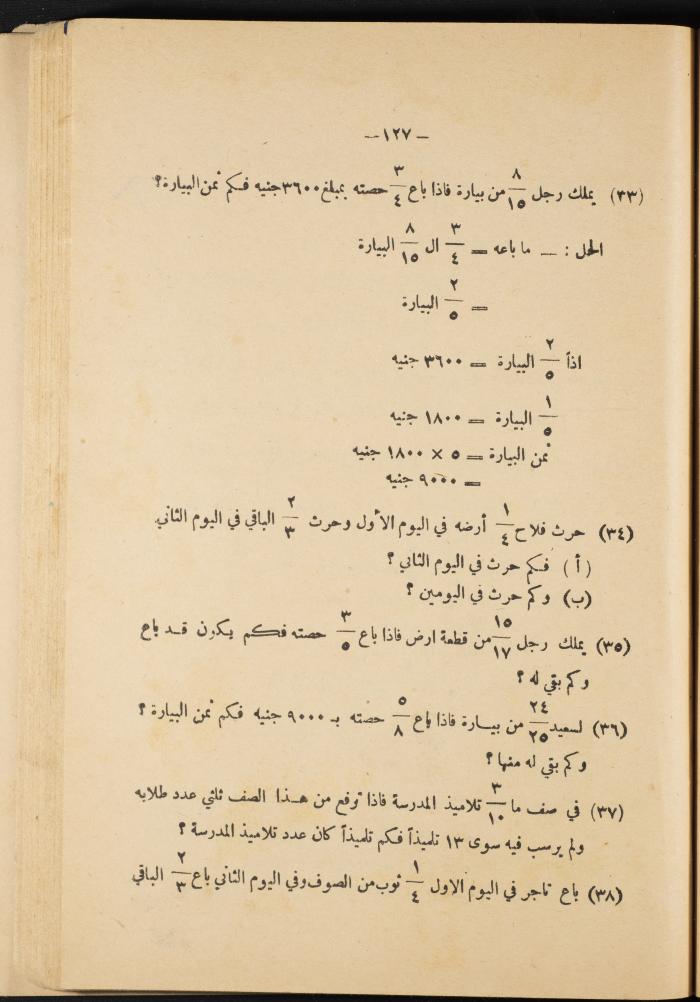 — ١٢٧ —
(٣٣) يملك رجل ٨/١٥ من بيارة فاذا باع ٣/٤ حصته بمبلغ ٣٦٠٠ جنيه فكم ثمن البيارة؟
الحل : — ما باعه = ٣/٤ ال ٨/١٥ البيارة
= ٢/٥ البيارة
اذاً ٢/٥ البيارة = ٣٦٠٠ جنيه
١/٥ البيارة = ١٨٠٠ جنيه
ثمن البيارة = ٥ × ١٨٠٠ جنيه
= ٩٠٠٠ جنيه
(٣٤) حرث فلاح ١/٤ أرضه في اليوم الأول وحرث ٢/٣ الباقي في اليوم الثاني.
(أ) فكم حرث في اليوم الثاني ؟
(ب) وكم حرث في اليومين ؟
(٣٥) يملك رجل ١٥/١٧ من قطعة ارض فاذا باع ٣/٥ حصته فكم يكون قد باع
وكم بقي له ؟
(٣٦) لسعيد ٢٤/٢٥ من بيارة فاذا باع ٥/٨ حصته بـ ٩٠٠٠ جنيه فكم ثمن البيارة ؟
وكم بقي له منها ؟
(٣٧) في صف ما ٣/١٠ تلاميذ المدرسة فاذا ترفع من هذا الصف ثلثي عدد طلابه
ولم يرسب فيه سوى ١٣ تلميذاً فكم تلميذاً كان عدد تلاميذ المدرسة ؟
(٣٨) باع تاجر في اليوم الاول ١/٤ ثوب من الصوف وفي اليوم الثاني باع ٢/٣ الباقي